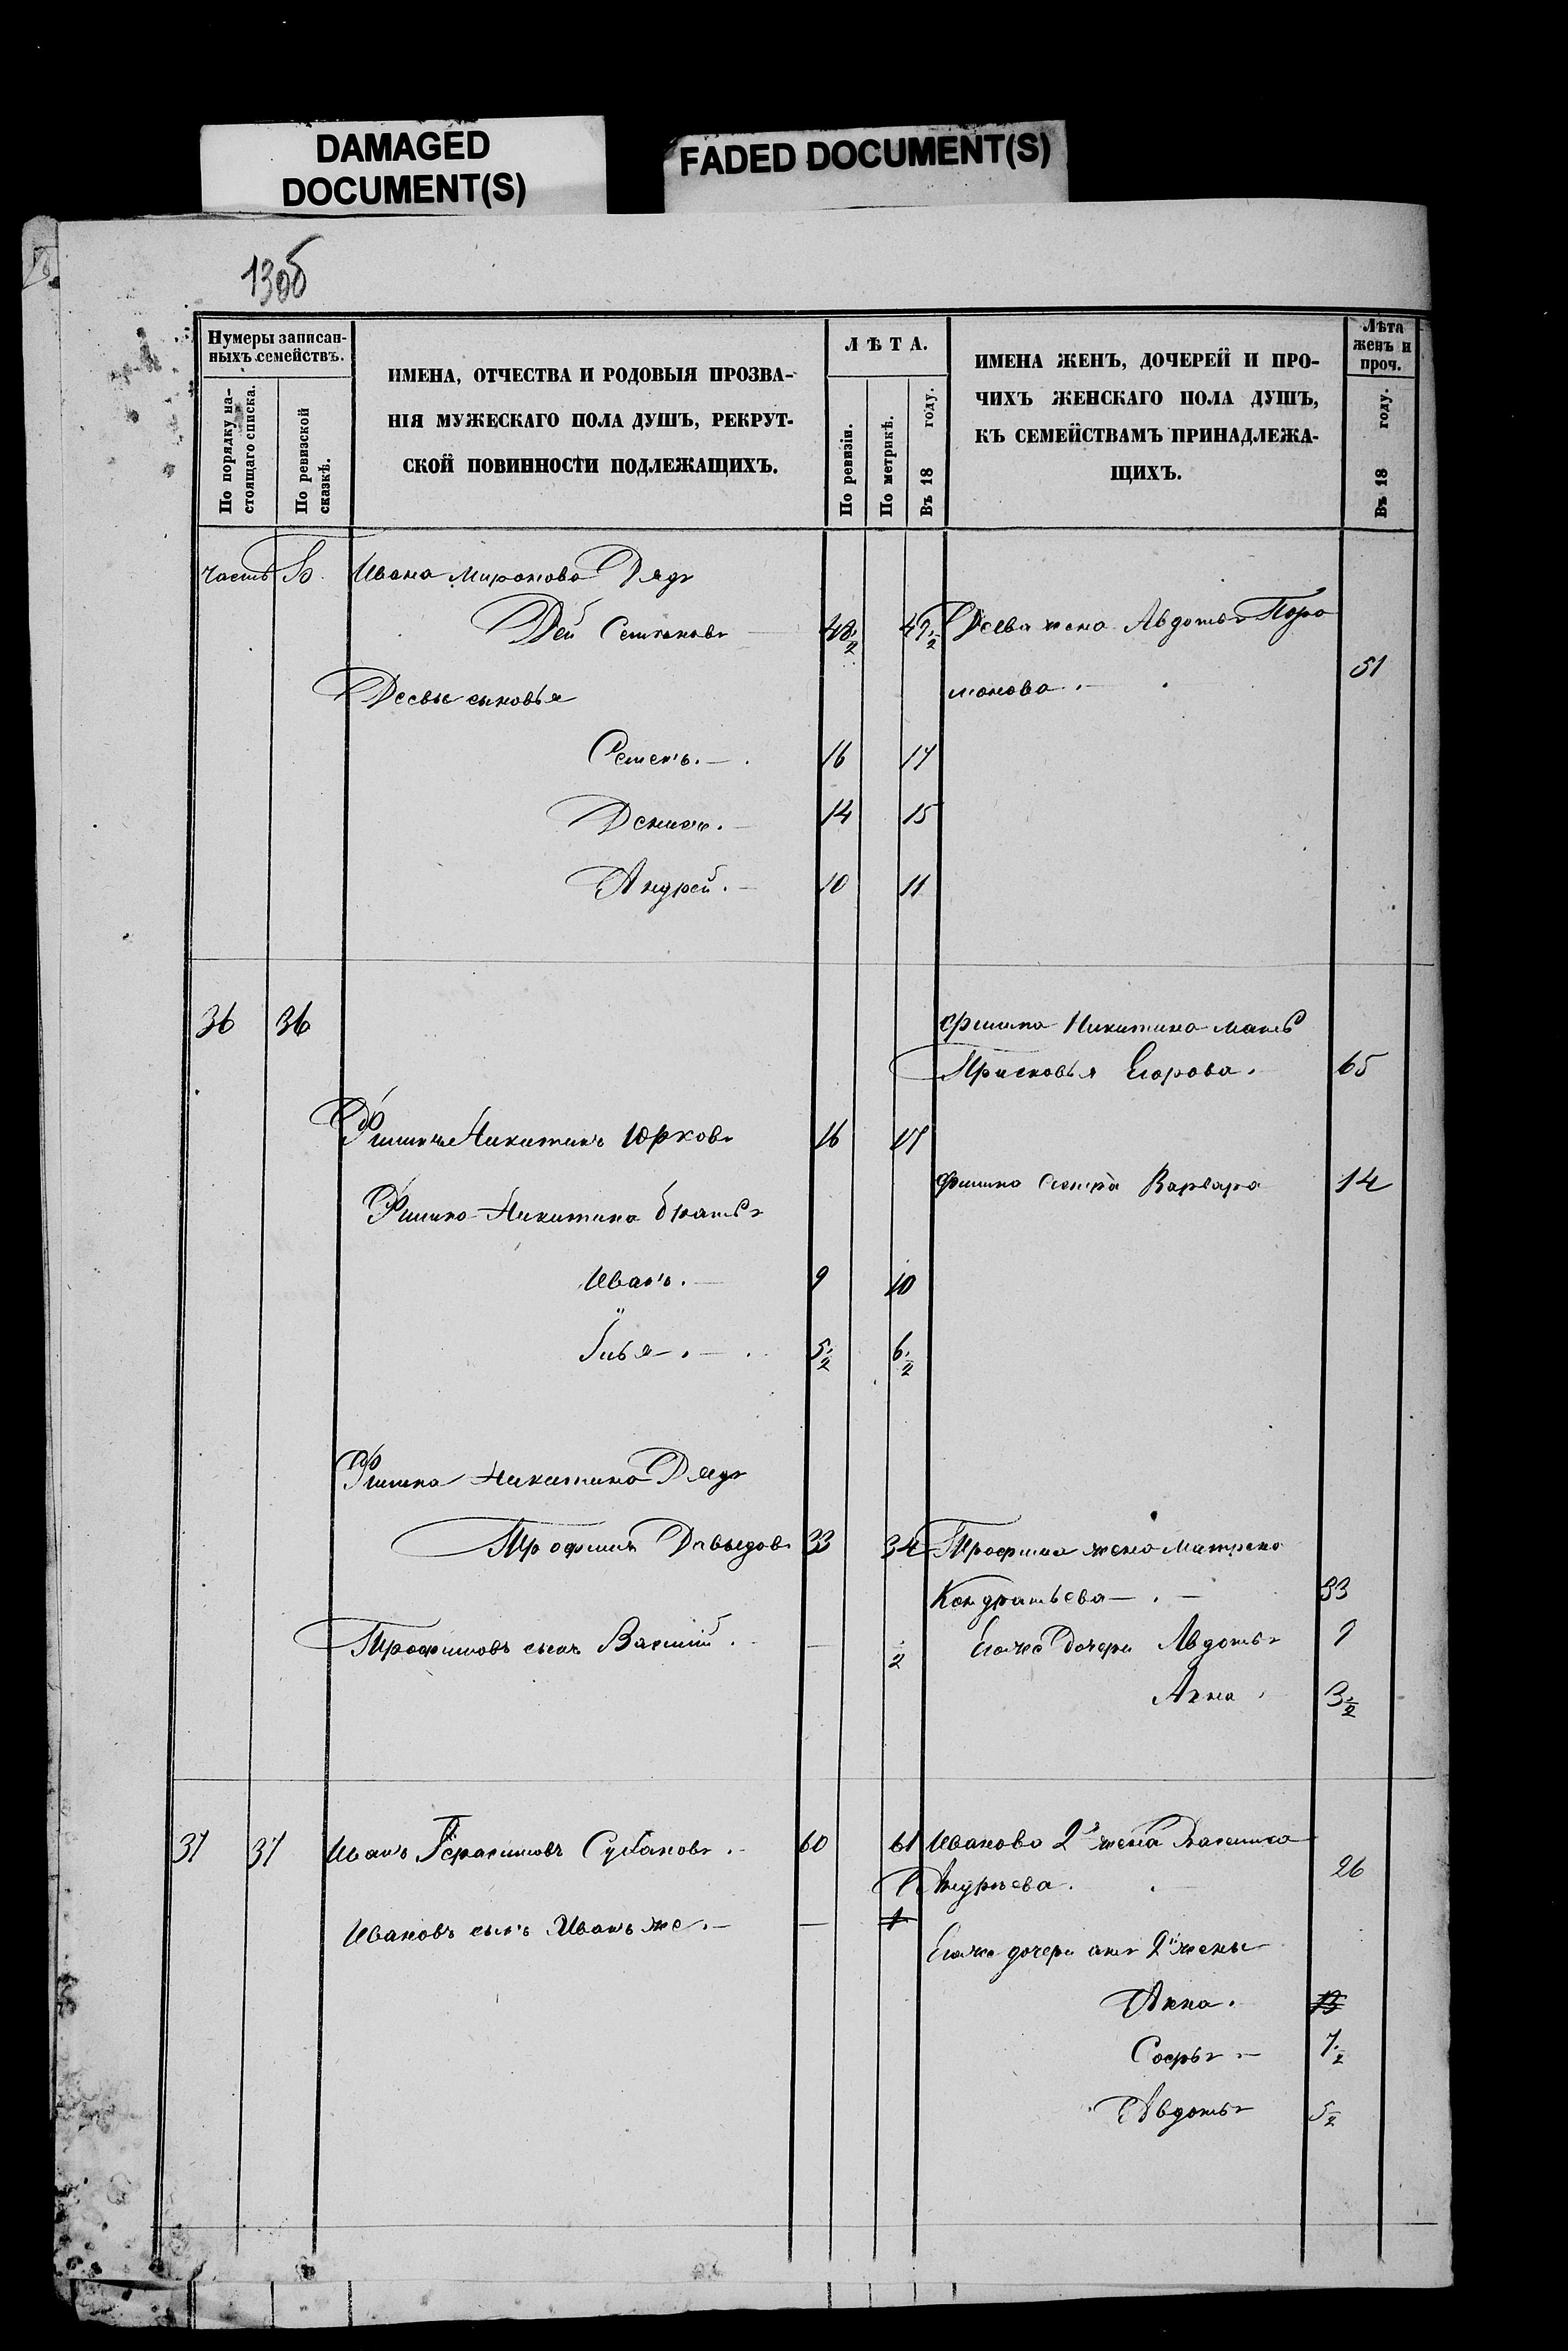 DAMAGED
DOCUMENT(S)
FADED DOCUMENT(S)
13об
Нумеры записан-
ныхъ семействъ.
По порядку на-
стоящаго списка.
По ревизской
сказкѣ.
ИМЕНА, ОТЧЕСТВА И РОДОВЫЯ ПРОЗВА-
НІЯ МУЖЕСКАГО ПОЛА ДУШЪ, РЕКРУТ-
СКОЙ ПОВИННОСТИ ПОДЛЕЖАЩИХЪ.
ЛѢТА.
По ревизіи.
По метрикѣ.
Въ 18 году.
ИМЕНА ЖЕНЪ, ДОЧЕРЕЙ И ПРО-
ЧИХЪ ЖЕНСКАГО ПОЛА ДУШЪ,
КЪ СЕМЕЙСТВАМЪ ПРИНАДЛЕЖА-
ЩИХЪ.
Лѣта
женъ и
проч.
Въ 18 году.
часть Ивана Миронова Дядя
Дей 48.½ 47.½ Деева жена Авдотья
монова. 51
Деевы сыновья
Семенъ. 16 17
Денисъ. 14 15
Андрей. 10 11
36 36 Фишка Никитина мать
Прасковья Егорова. 65
Никитинъ Юрковъ 16 17
сестра Варвара 14
Никитина братья
Иванъ. 9 10
Илья. 5.½ 6.½
Никитина Дядя
Трофимъ Давыдовъ 33 34 Трофима жена Матрена
Кондратьева 33
Трофимовъ сынъ — ½ Егоже Дочери Авдотья 9
Анна 3.½
37 37 Иванъ Герасимовъ 60 61 Иванова 2я жена Василиса
Андреева. 26
Ивановъ сынъ Иванъ же. — 1
Егоже дочери отъ 2й жены
Анна. 13
Софья 7.½
Авдотья 5½